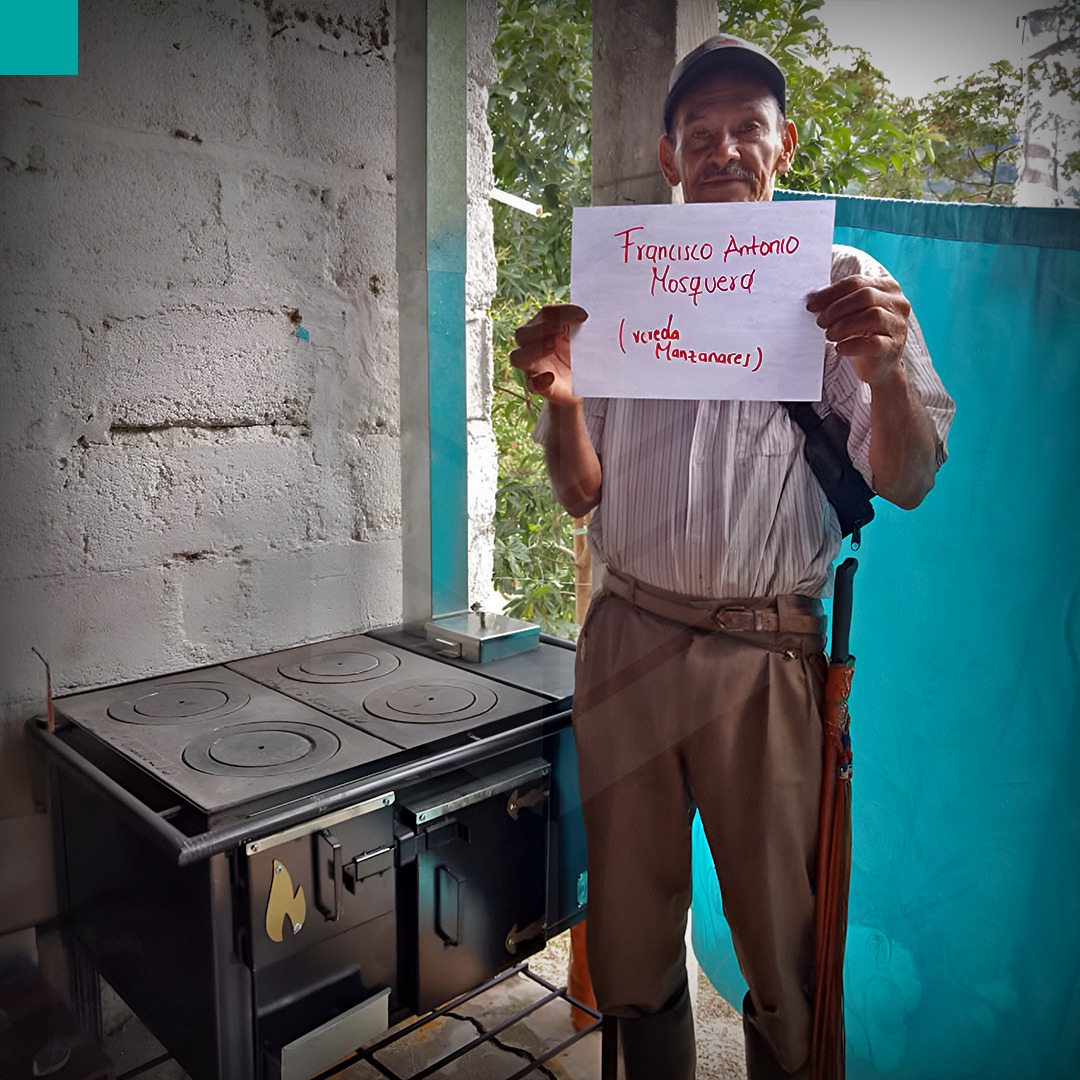 Francisco Antonio
Mosquera
(vereda
Manzanares)